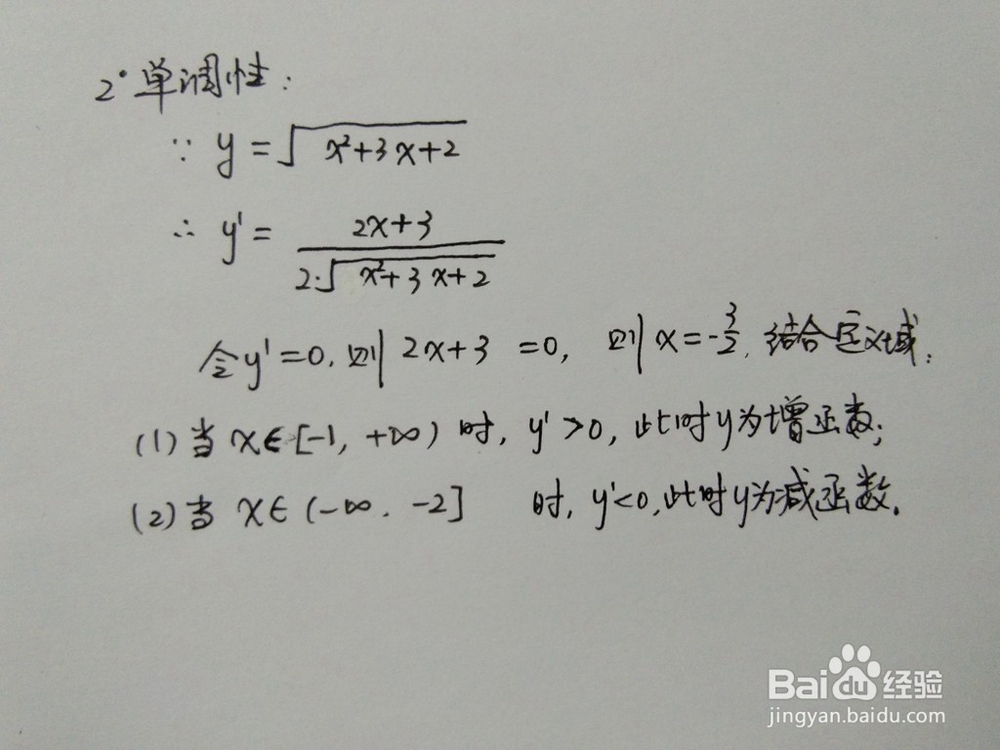 2° 单调性:
∵ y = √(x²+3x+2)
∴ y' = (2x+3)/(2·√(x²+3x+2))
令y'=0, 则 2x+3 =0, 则 x = -3/2, 结合定义域:
(1) 当 x∈[-1, +∞) 时, y'>0, 此时y为增函数;
(2) 当 x∈(-∞, -2] 时, y'<0, 此时y为减函数.
Baidu经验
jingyan.baidu.com